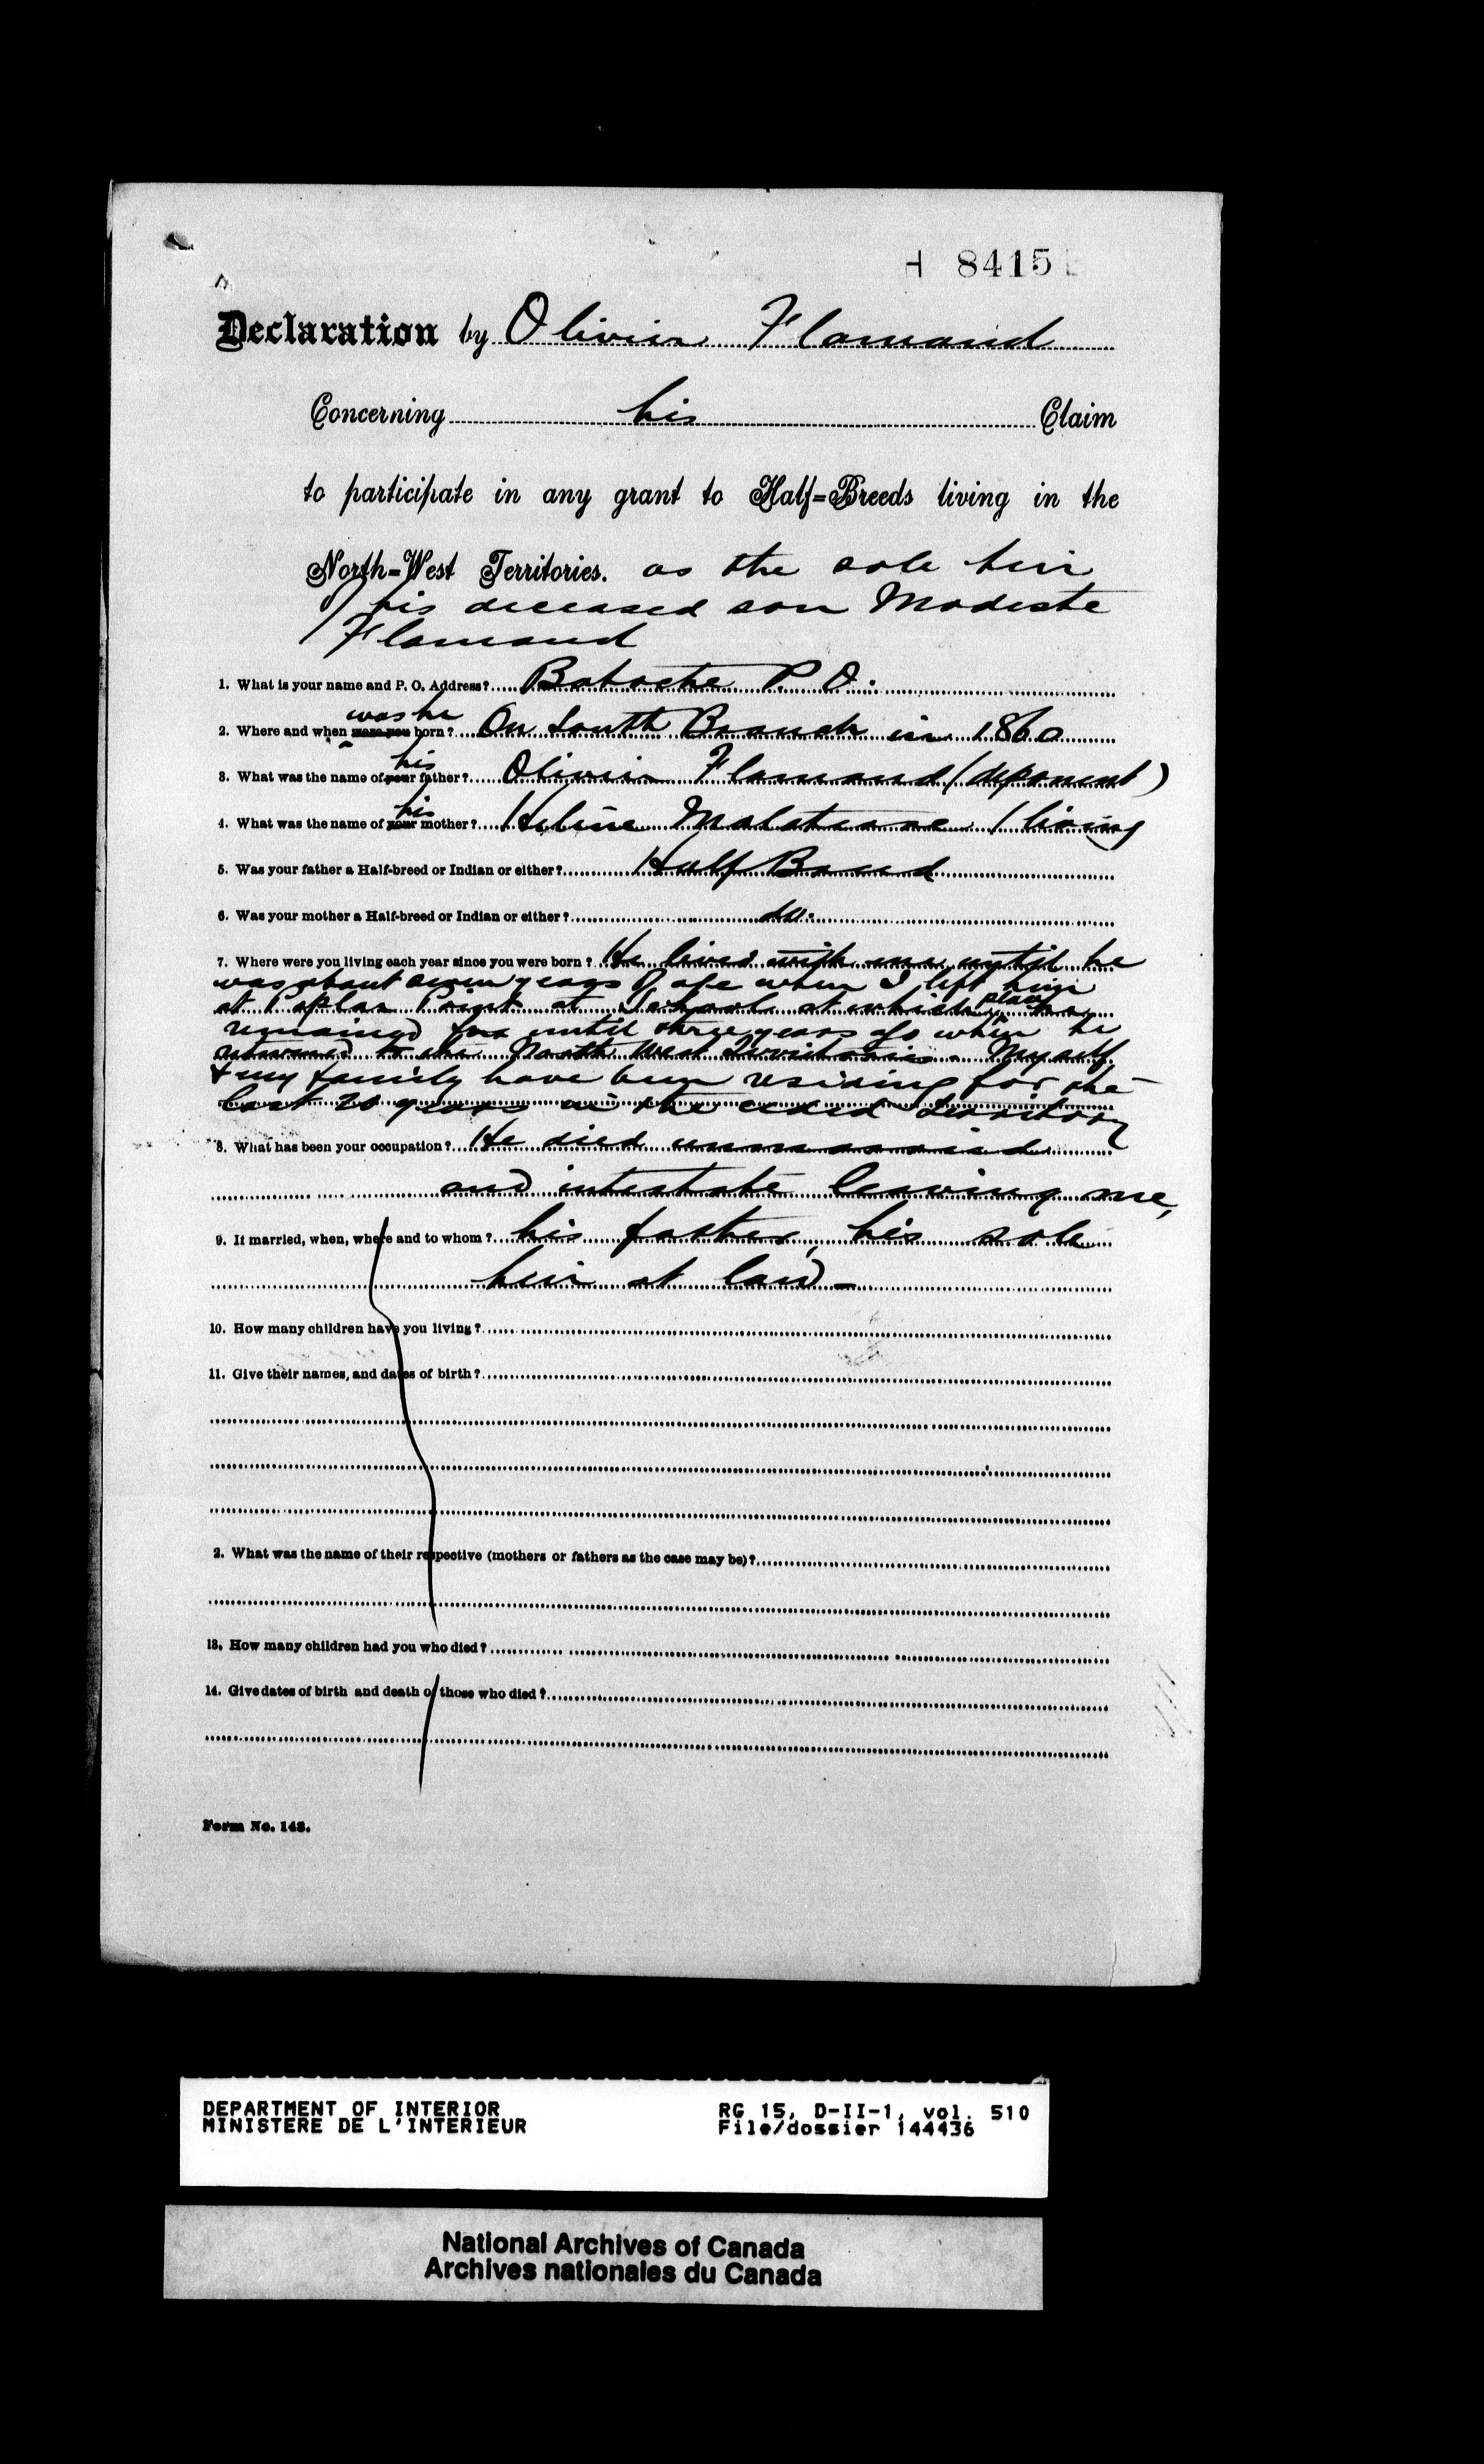 H 8415
Declaration by Olivier Flamand
Concerning his Claim
to participate in any grant to Half=Breeds living in the
North=West Territories. as the sole heir
of his deceased son Modeste
Flamand
1. What is your name and P. O. Address? Batoche P. O.
was he
2. Where and when were you born? On South Branch in 1860
his
3. What was the name of your father? Olivier Flamand (deponent)
his
4. What was the name of your mother? Helène Malaterre (living
5. Was your father a Half-breed or Indian or either? Half Breed
6. Was your mother a Half-breed or Indian or either? do.
7. Where were you living each year since you were born? He lived with me until he
was about seven years of age when I left him
at Poplar Point at School at which place he
remained for until three years ago when he
returned to the North West Territories. Myself
& my family have been residing for the
last 20 years in the ceded Territory
8. What has been your occupation? He died unmarried
and intestate leaving me,
9. If married, when, where and to whom? his father, his sole
heir at law -
10. How many children have you living?
11. Give their names, and dates of birth?
2. What was the name of their respective (mothers or fathers as the case may be)?
13. How many children had you who died?
14. Give dates of birth and death of those who died?
Form No. 143.
DEPARTMENT OF INTERIOR RG 15, D-II-1, vol. 510
MINISTERE DE L'INTERIEUR File/dossier 144436
National Archives of Canada
Archives nationales du Canada